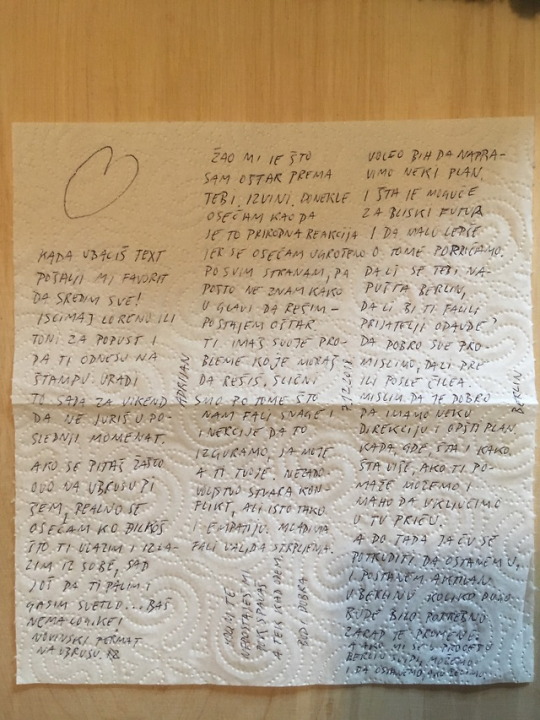 KADA UBACIŠ TEXT
POŠALJI MI FAVORIT
DA SREDIM SVE!
ISCIMAJ LORENO ILI
TONI ZA POPUST I
DA TI ODNESU NA
ŠTAMPU. URADI
TO SADA ZA VIKEND
DA NE JURIŠ U PO-
SLEDNJI MOMENAT.
AKO SE PITAŠ ZAŠTO
OVO NA UBRUSU PI
ŠEM, REALNO SE
OSEĆAM KO
ŠTO TI ULAZIM I IZLA-
ZIM IZ SOBE, SAD
JOŠ DA TI PALIM I
GASIM SVETLO... BAŠ
NEMA LOGIKE!
NOVINSKI FORMAT
NA UBRUSU.
ŽAO MI JE ŠTO
SAM OŠTAR PREMA
TEBI. IZVINI. DONEKLE
OSEĆAM KAO DA
JE TO PRIRODNA REAKCIJA
JER SE OSEĆAM UGROŽENO
PO SVIM STRANAM, PA
POŠTO NE ZNAM KAKO
U GLAVI DA REŠIM-
POSTAJEM OŠTAR
TI IMAŠ SVOJE PRO-
BLEME KOJE MORAŠ
DA REŠIŠ, SLIČNI
SMO PO TOME ŠTO
NAM FALI SNAGE I
INERCIJE DA TO
IZGURAMO, JA MOJE
A TI TVOJE. NEZADO-
VOLJSTVO STVARA KON-
FLIKT, ALI ISTO TAKO
I EMPATIJU. MLADIMA
FALI VALJDA STRPLJENJA.
VOLIM TE
NEDOSTAJEŠ MI
JOŠ SPAVAŠ
A TEK KAD ODEM
BUDI DOBRA
ADRIJAN
VOLEO BIH DA NAPRA-
VIMO NEKI PLAN,
I ŠTA JE MOGUĆE
ZA BLISKI FUTUR
I DA MALO LEPŠE
O TOME PORRIČAMO.
DA LI SE TEBI NA-
PUŠTA BERLIN,
DA LI BI TI FALILI
PRIJATELJI ODAVDE?
DA DOBRO SVE PRO
MISLIMO, DALI PRE
ILI POSLE ČILEA.
MISLIM DA JE DOBRO
DA IMAMO NEKU
DIREKCIJU I OPŠTI PLAN,
KADA, GDE, ŠTA I KAKO.
ŠTA VIŠE, AKO TI PO-
MAŽE MOŽEMO I
DA UKLJUČIMO
U TU PRIČU.
A DO TADA JA ĆU SE
POTRUDITI DA OSTANEM
I POSTANEM
U BERLINU KOLIKO GOD
BUDE BILO POTREBNO
ZARAD TE PROMENE.
A AKO MI SE U PROCESU
BERLIN MOŽEMO
I DA OSTANEMO AKO ŽELIMO...
BERLIN